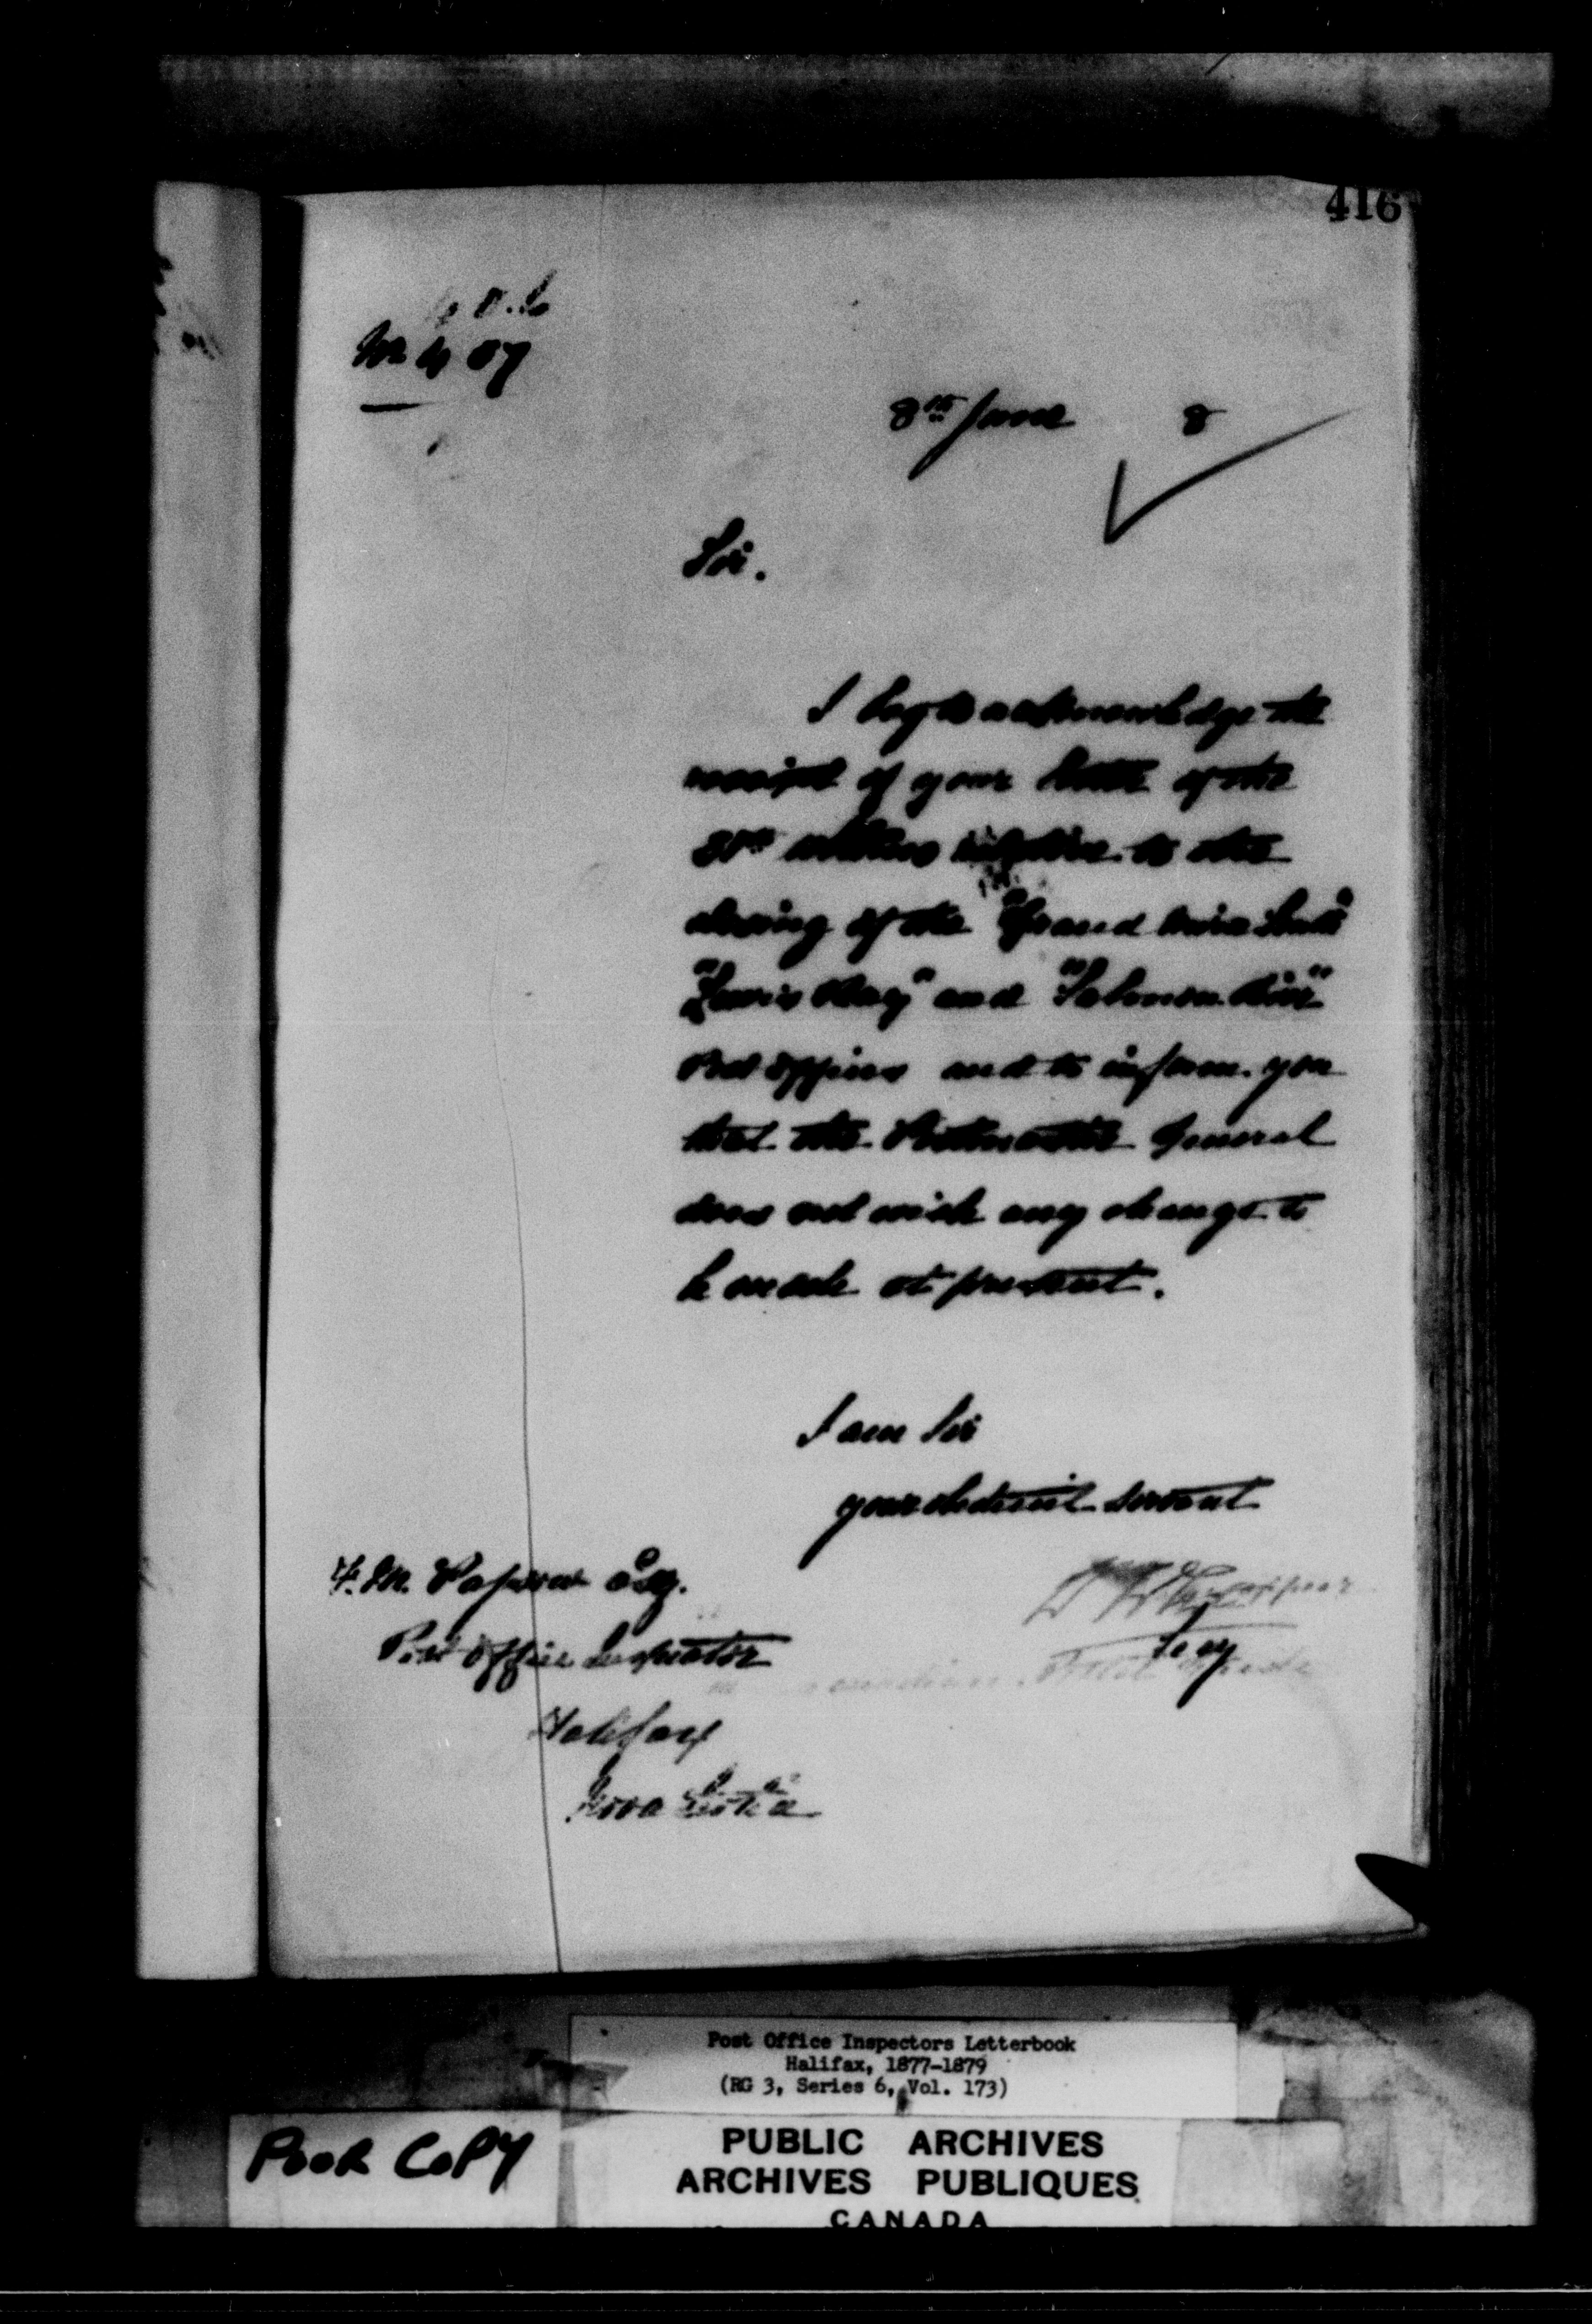 416
No 407
8th June 8
Sir.
I beg to acknowledge the
receipt of your letter of the
31st ultimo relative to the
closing of the "Grand Mira South"
"Lewis Bay" and "Salmon River"
Post Offices and to inform you
that the Postmaster General
does not wish any change to
be made at present.
I am Sir
your obedient servant
F. M. Passow Esq.
Post Office Inspector
Halifax
Nova Scotia
Post Office Inspectors Letterbook
Halifax, 1877-1879
(RG 3, Series 6, Vol. 173)
POOR COPY
PUBLIC ARCHIVES
ARCHIVES PUBLIQUES
CANADA